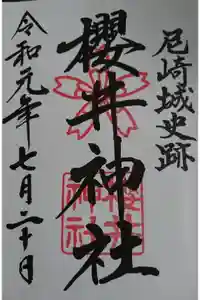 尼崎城史跡
櫻井神社
櫻井神社
令和元年七月二十日